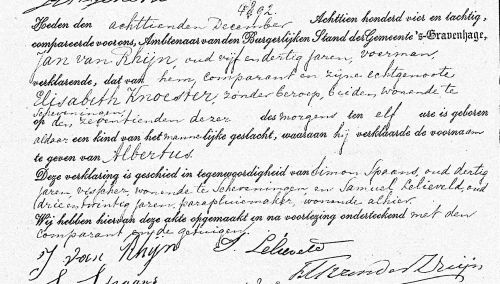 4802.
Heden den achttienden December Achttien honderd vier en tachtig,
compareerde voor ons, Ambtenaar van den Burgerlijken Stand der Gemeente 's-Gravenhage,
Jan van Rhijn, oud vijf en dertig jaren, voerman,
verklarende, dat van hem, comparant en zijne echtgenoote
Elisabeth Knoester, zonder beroep, beiden wonende te
Scheveningen,
op den zeventienden dezer des morgens ten elf ure is geboren
aldaar een kind van het mannelijke geslacht, waaraan hij verklaarde de voornaam
te geven van Albertus.
Deze verklaring is geschied in tegenwoordigheid van Simon Spaans, oud dertig
jaren, visscher, wonende te Scheveningen, en Samuel Lelieveld, oud
drieentwintig jaren, parapluiemaker, wonende alhier.
Wij hebben hiervan deze akte opgemaakt en na voorlezing onderteekend met den
comparant en de getuigen.
J van Rhijn S. Lelieveld
S. Spaans